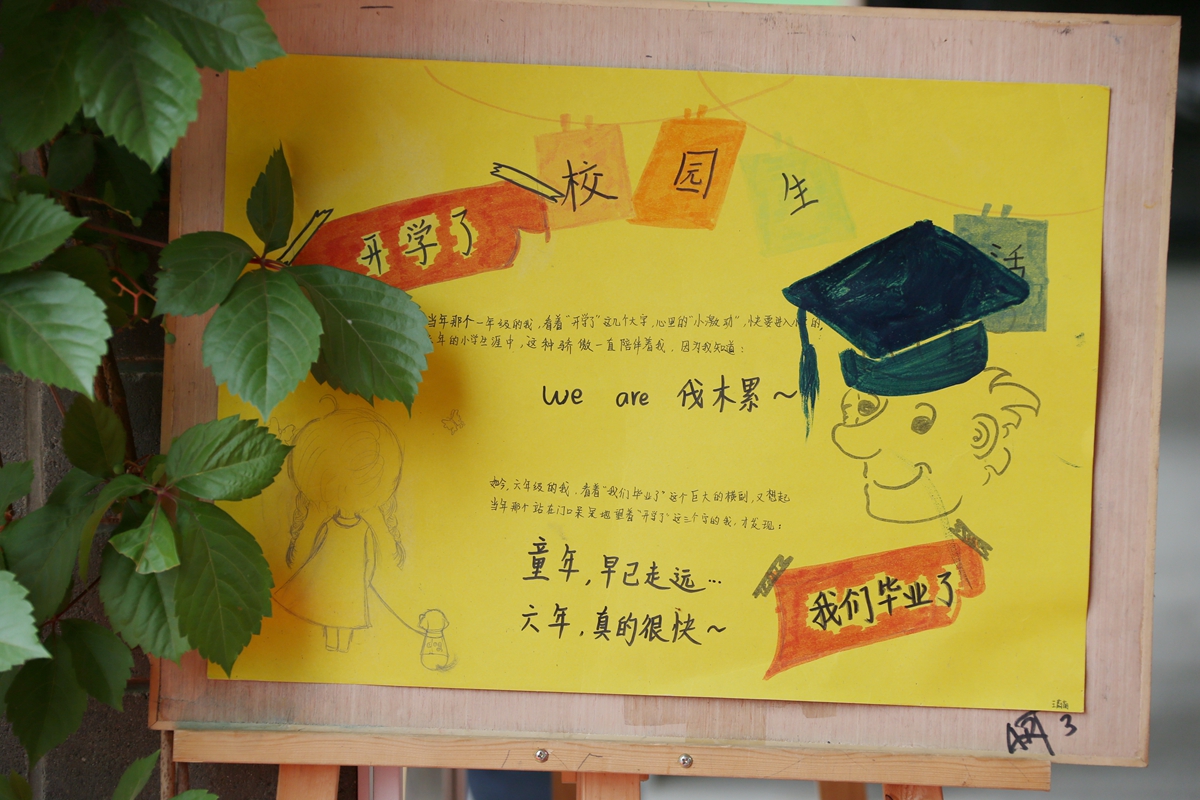 校园生活
开学了
当年那个一年级的我,看着"开学了"这几个大字,心里的"小激动",快要进入
年的小学生涯中,这种骄傲一直陪伴着我,因为我知道:
we are 伐木累~
如今,六年级的我,看着"我们毕业了"这个巨大的横幅,又想起
当年那个站在门口呆呆地望着"开学了"这三个字的我,才发现:
童年,早已走远...
六年,真的很快~
我们毕业了
3